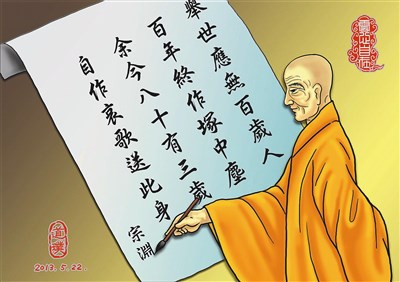 舉世應無百歲人
百年終作塚中塵
余今八十有三歲
自作哀歌送此身
宗淵
2013.5.22.